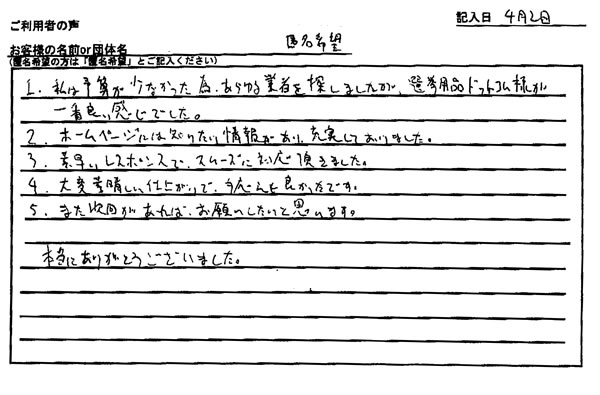 ご利用者の声
記入日 4月2日
お客様の名前or団体名 匿名希望
(匿名希望の方は「匿名希望」とご記入ください)
1. 私は予算が少なかった為、あらゆる業者を探しましたが、選挙用品ドットコム様が
一番良い感じでした。
2. ホームページには知りたい情報があり、充実しておりました。
3. 素早いレスポンスで、スムーズに対応頂きました。
4. 大変素晴しい仕上がりで、頼んで良かったです。
5. また次回があれば、お願いしたいと思います。
本当にありがとうございました。